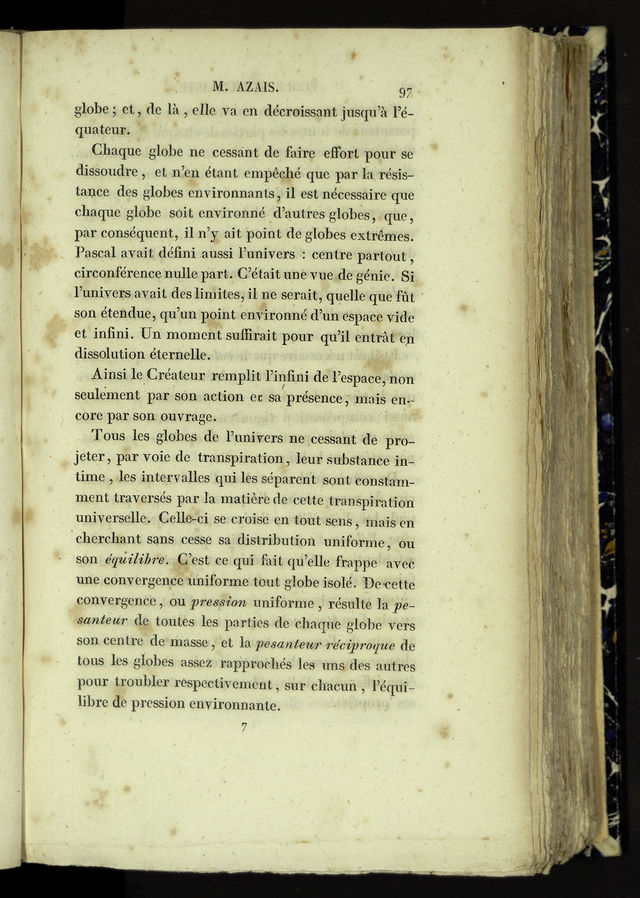 M. AZAIS.
97
globe ; et, de là , elle va en décroissant jusqu'à l'é-
quateur.
Chaque globe ne cessant de faire effort pour se
dissoudre , et n'en étant empêché que par la résis-
tance des globes environnants, il est nécessaire que
chaque globe soit environné d'autres globes, que,
par conséquent, il n'y ait point de globes extrêmes.
Pascal avait défini aussi l'univers : centre partout,
circonférence nulle part. C'était une vue de génie. Si
l'univers avait des limites, il ne serait, quelle que fût
son étendue, qu'un point environné d'un espace vide
et infini. Un moment suffirait pour qu'il entrât en
dissolution éternelle.
Ainsi le Créateur remplit l'infini de l'espace, non
seulement par son action et sa présence, mais en-
core par son ouvrage.
Tous les globes de l'univers ne cessant de pro-
jeter, par voie de transpiration, leur substance in-
time , les intervalles qui les séparent sont constam-
ment traversés par la matière de cette transpiration
universelle. Celle-ci se croise en tout sens, mais en
cherchant sans cesse sa distribution uniforme, ou
son équilibre. C'est ce qui fait qu'elle frappe avec
une convergence uniforme tout globe isolé. De cette
convergence, ou pression uniforme, résulte la pe-
santeur de toutes les parties de chaque globe vers
son centre de masse, et la pesanteur réciproque de
tous les globes assez rapprochés les uns des autres
pour troubler respectivement, sur chacun, l'équi-
libre de pression environnante.
7